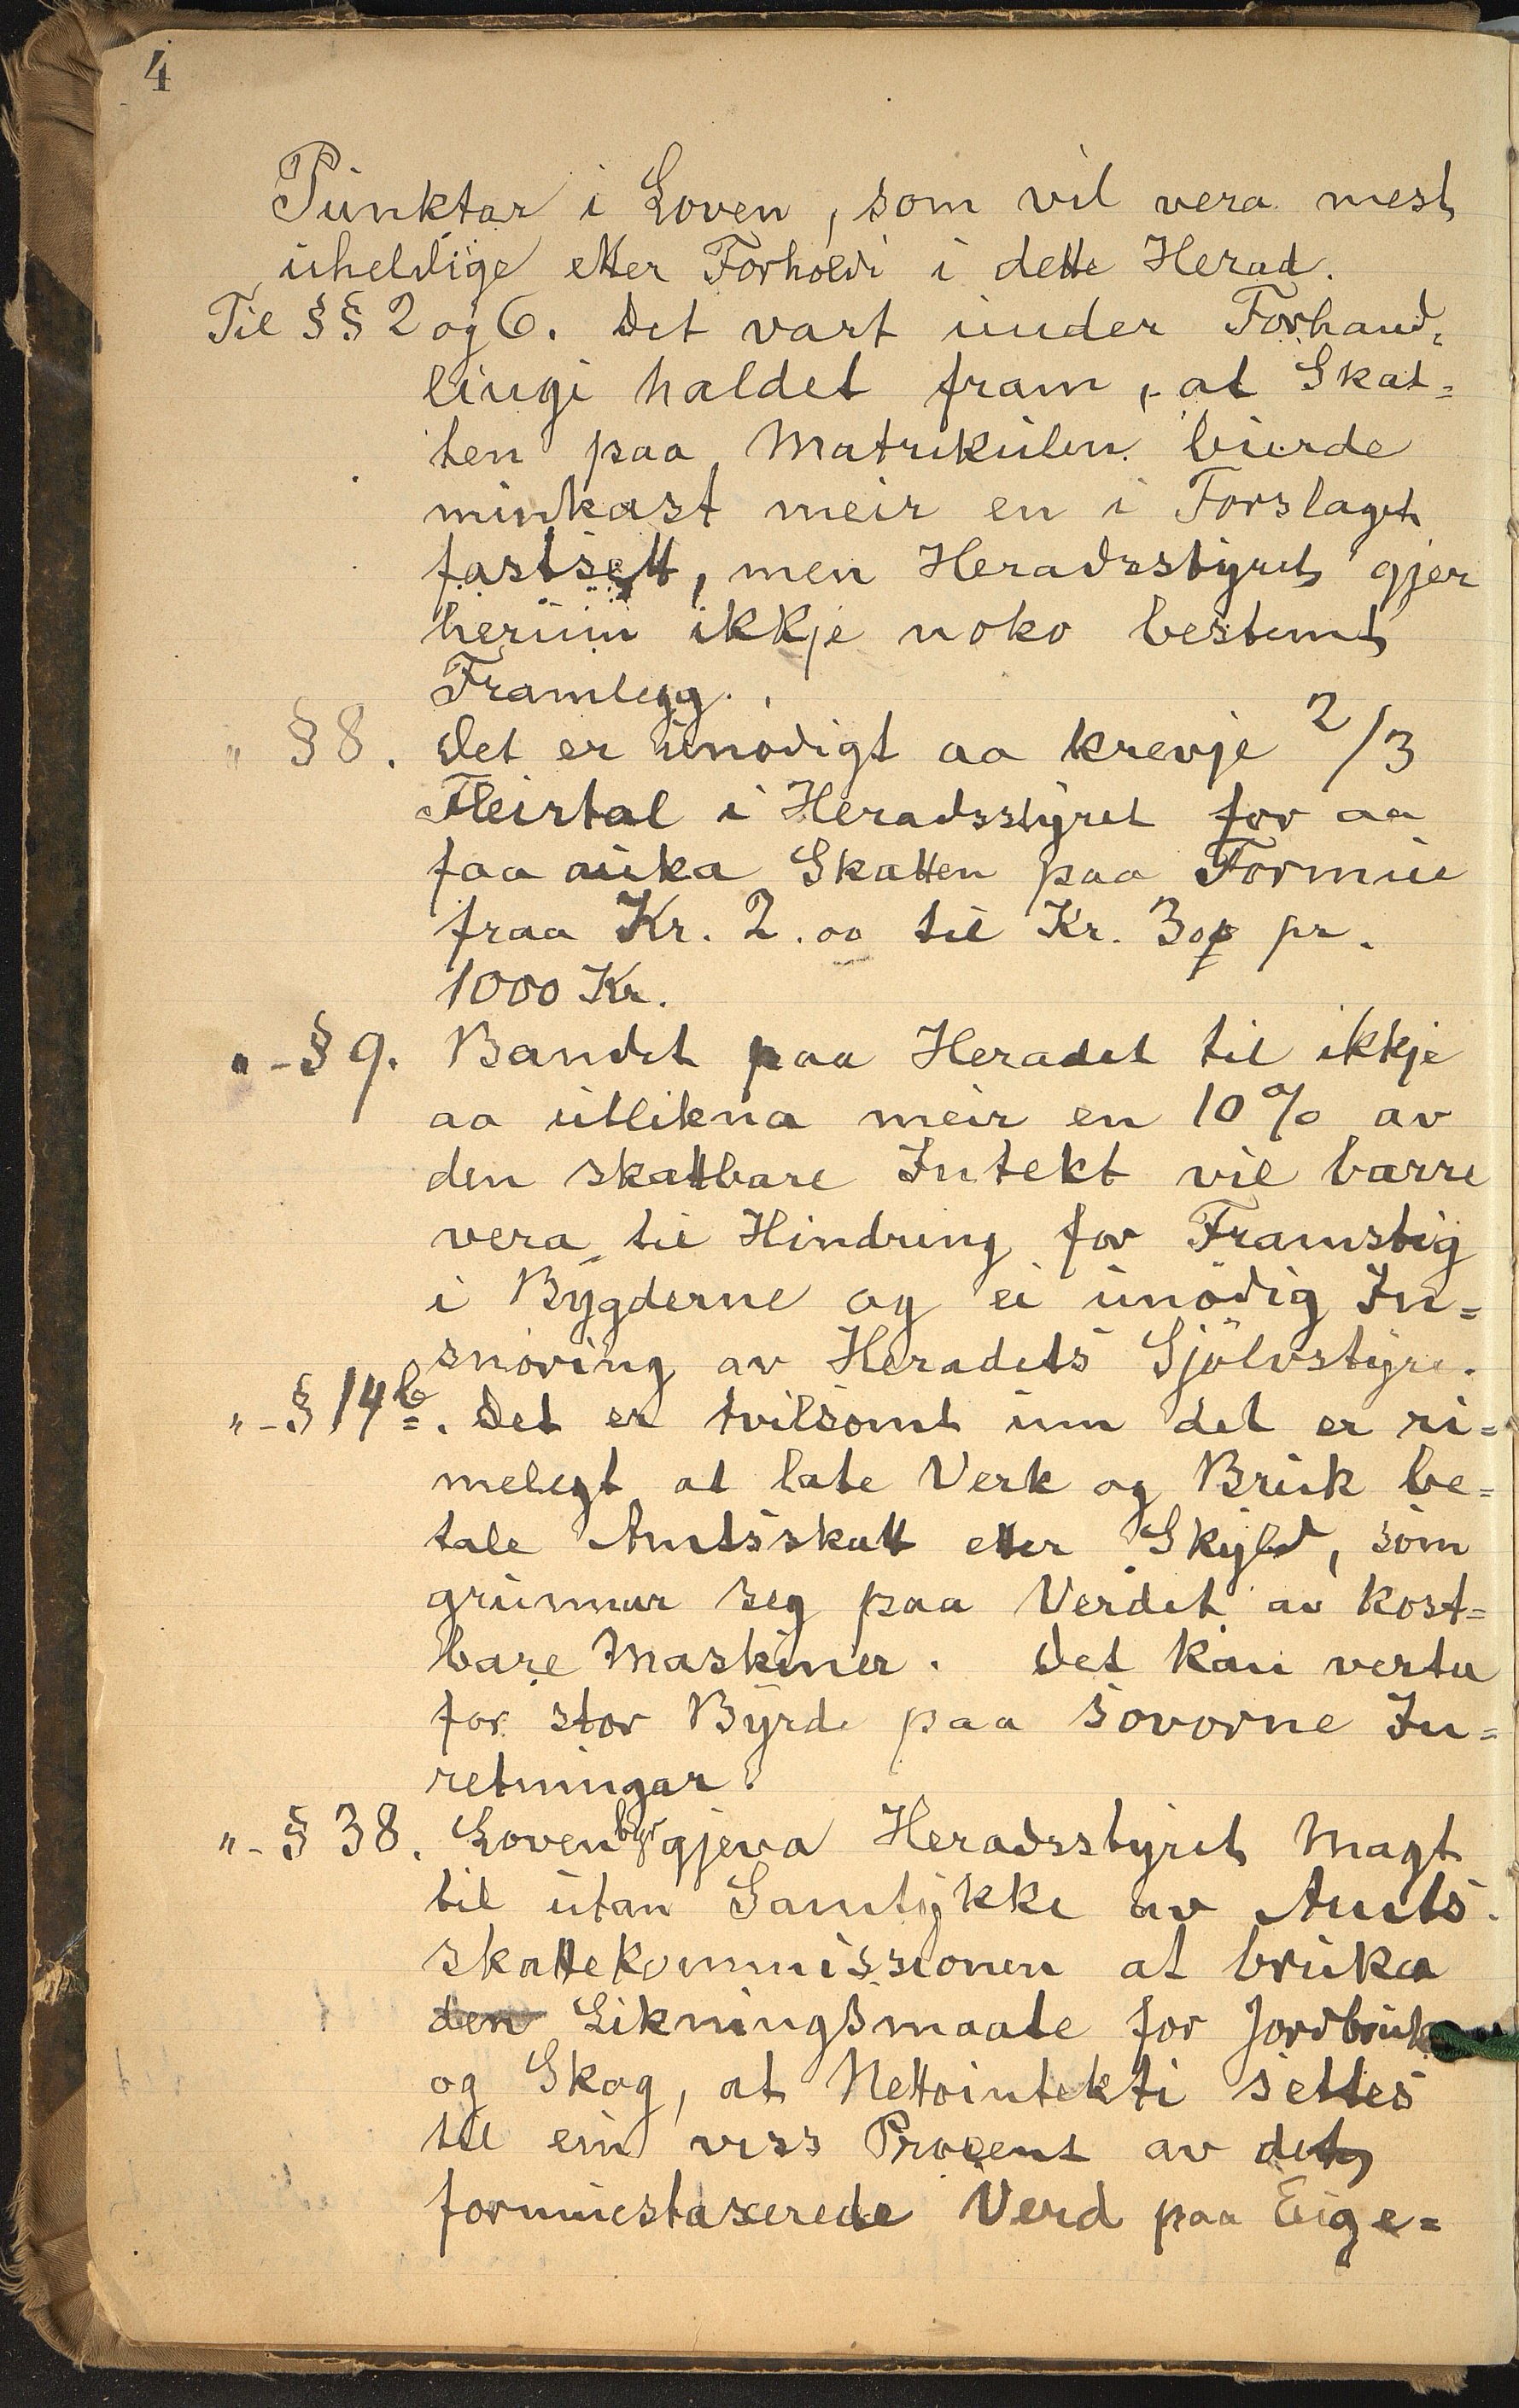 4
Punktar i Loven, som vil vera mest
uheldige etter Forholdi i dette Herad.
Til §§ 2 og 6. Det vart under Forhand-
lingi haldet fram, at Skat=
ten paa Matrikulen burde
minkast meir en i Forslaget
fastsett, men Heradsstyret gjer
herum ikkje noko bestemt
Framlegg.
" § 8. Det er unødigt aa krevje 2/3
Fleirtal i Heradsstyret for aa
faa auka Skatten paa Formue
fraa Kr. 2.00 til Kr. 3.00 pr.
1000 Kr.
" - § 9. Bandet paa Heradet til ikkje
aa utlikna meir en 10% av
den skattbare Intekt vil barre
vera til Hindring for Framstig
i Bygderne og ei unödig In=
snöring av Heradets Sjölvstyre.
" - § 14 b. Det er tvilsomt um det er ri=
melegt at late Verk og Bruk be=
tale Amtsskatt etter Skyld, som
grunnar seg paa Verdet av kost=
bare Maskiner. Det kan verta
for stor Byrde paa sovorne In=
retningar.
" - § 38. Loven bør gjeva Heradsstyret Magt
til utan Samtykke av Amts-
skattekommissionen at bruka
den Likningsmaate for Jordbruk
og Skog, at Nettointekti settes
til ein viss Procent av det
formuestaxerede Verd paa Eige=